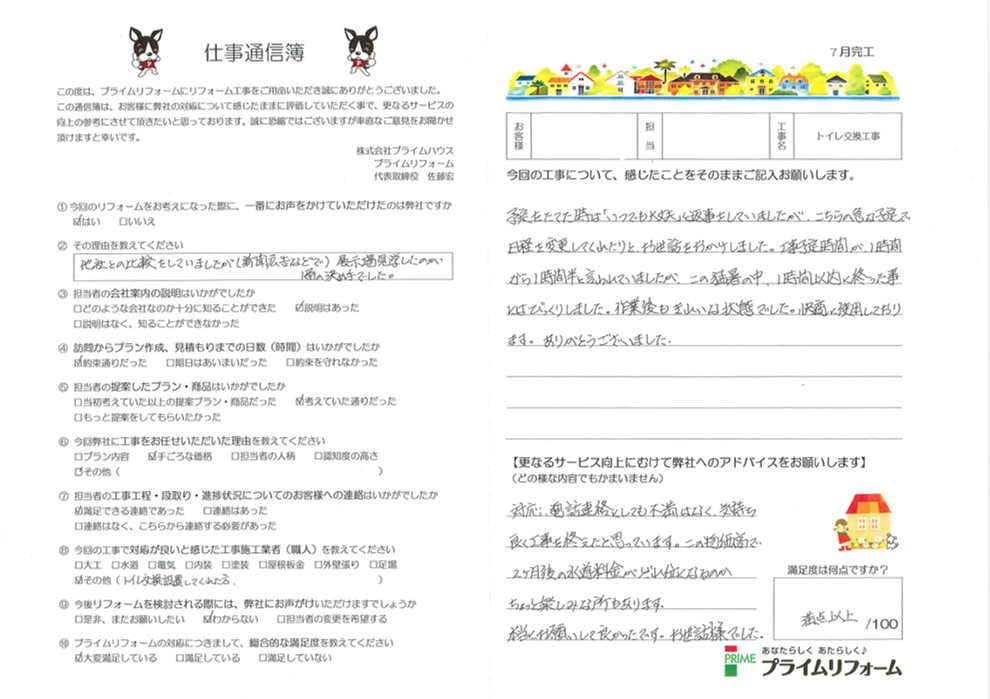 仕事通信簿
この度は、プライムリフォームにリフォーム工事をご用命いただき誠にありがとうございました。
この通信簿は、お客様に弊社の対応について感じたままに評価していただく事で、更なるサービスの
向上の参考にさせて頂きたいと思っております。誠に恐縮ではございますが率直なご意見をお聞かせ
頂けますと幸いです。
株式会社プライムハウス
プライムリフォーム
代表取締役 佐藤宏
① 今回のリフォームをお考えになった際に、一番にお声をかけていただけたのは弊社ですか
☑はい □いいえ
② その理由を教えてください
他社との比較をしていましたが(新聞広告などで)展示場見学したのが
一番の決め手でした。
③ 担当者の会社案内の説明はいかがでしたか
□どのような会社なのか十分に知ることができた ☑説明はあった
□説明はなく、知ることができなかった
④ 訪問からプラン作成、見積もりまでの日数（時間）はいかがでしたか
☑約束通りだった □期日はあいまいだった □約束を守れなかった
⑤ 担当者の提案したプラン・商品はいかがでしたか
□当初考えていた以上の提案プラン・商品だった ☑考えていた通りだった
□もっと提案をしてもらいたかった
⑥ 今回弊社に工事をお任せいただいた理由を教えてください
□プラン内容 ☑手ごろな価格 □担当者の人柄 □認知度の高さ
☑その他（ ）
⑦ 担当者の工事工程・段取り・進捗状況についてのお客様への連絡はいかがでしたか
☑満足できる連絡であった □連絡はあった
□連絡はなく、こちらから連絡する必要があった
⑧ 今回の工事で対応が良いと感じた工事施工業者（職人）を教えてください
□大工 □水道 □電気 □内装 □塗装 □屋根板金 □外壁張り □足場
☑その他（トイレ交換設置してくれた方。 ）
⑨ 今後リフォームを検討される際には、弊社にお声がけいただけますでしょうか
□是非、またお願いしたい ☑わからない □担当者の変更を希望する
⑩ プライムリフォームの対応につきまして、総合的な満足度を教えてください
☑大変満足している □満足している □満足していない
7月完工
お客様 担当 工事名 トイレ交換工事
今回の工事について、感じたことをそのままご記入お願いします。
予定をたてた時は「いつでも大丈夫」と返事をしていましたが、こちらの急な予定で
日程を変更してくれたりと、お世話をおかけしました。工事予定時間が、1時間
から1時間半と言われていましたが、この猛暑の中、1時間以内に終った事
にはびっくりしました。作業後もきれいな状態でした。快適に使用しており
ます。ありがとうございました。
【更なるサービス向上にむけて弊社へのアドバイスをお願いします】
（どの様な内容でもかまいません）
対応、電話連絡としても不満はなく、気持ち
良く工事を終えたと思っています。この物価高で
2ヶ月後の水道料金がどれ位になるのか
ちょっと楽しみな所もあります。
お願いして良かったです。お世話様でした。
満足度は何点ですか？
満点以上 /100
PRIME
あなたらしく あたらしく♪
プライムリフォーム